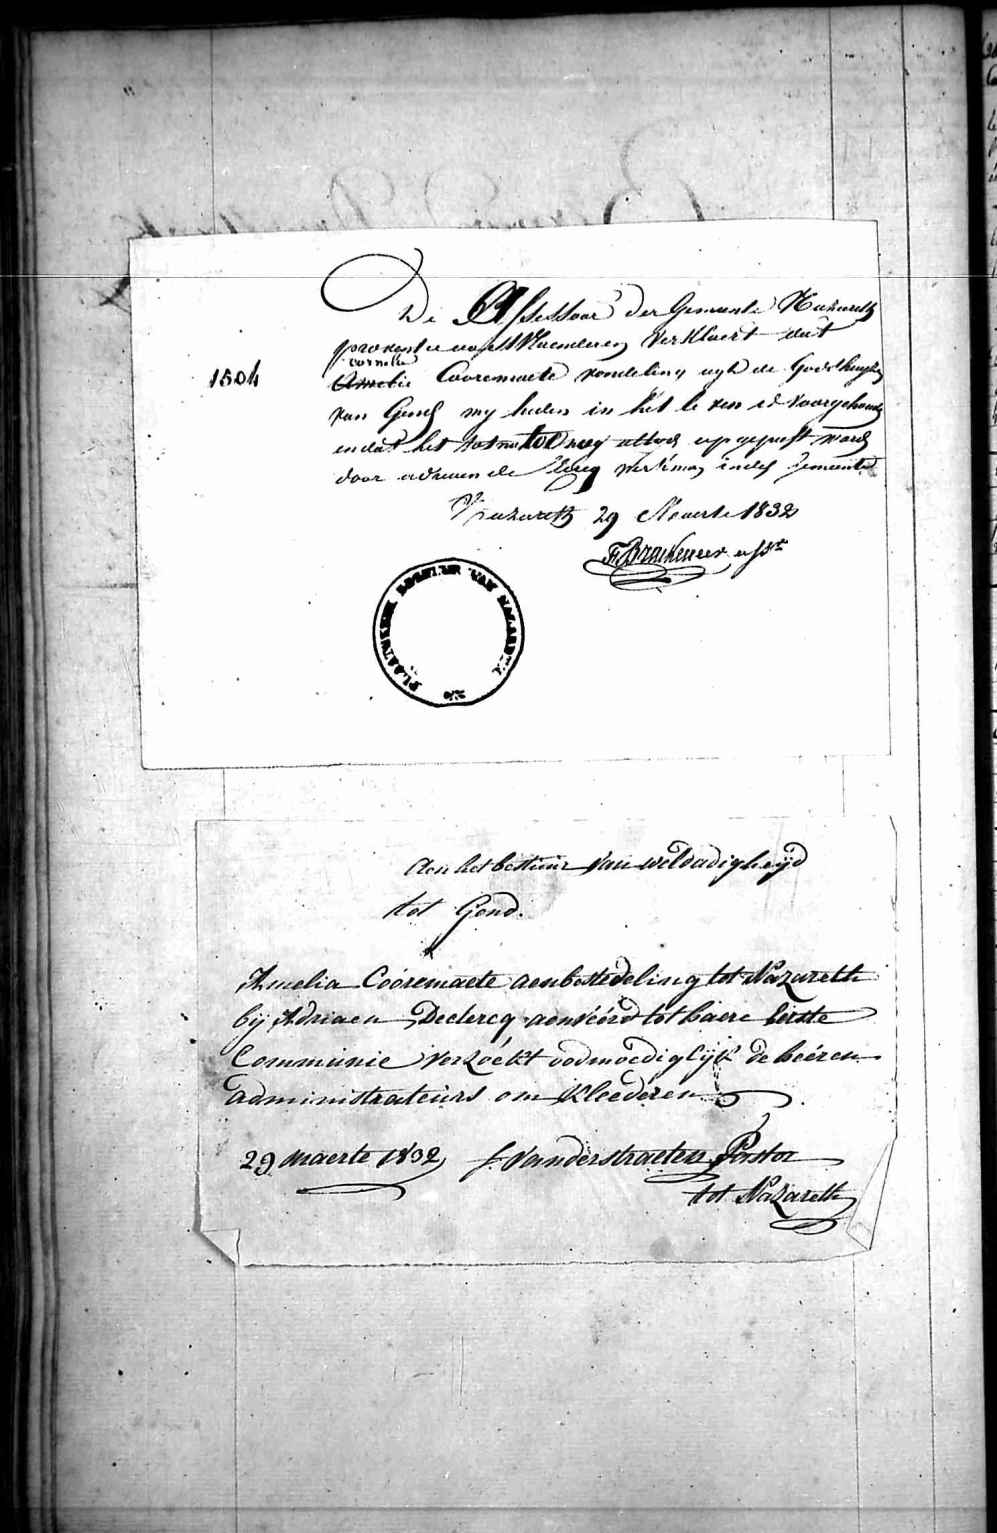 De Assessor der Gemeente Nazareth
provincie oost Vlaenderen Verklaert dat
1504
Cornelia
Amelie Cooremaete vondeling uyt de Godshuyzen
van Gend my heden in het le ven is voorgehouden
en dat het tot nu toe nog altyd opgepast word
door adriaen de Clercq dezer gemeente
Nazareth 29 Maerte 1832
F Braekeveer ass.
PLAATSELYK BESTUUR VAN NAZARETH
Aen het bestuur Van weldadigheijd
tot Gend.
Amelia Cooremaete aenbestedeling tot Nazareth
bij Adriaen Declercq aenveérd tot haere Eerste
Communie verzoékt oodmoediglijk de heéren
administrateurs om Kleederen
29 maerte 1832 f. Vanderstraeten Pastor
tot Nazareth